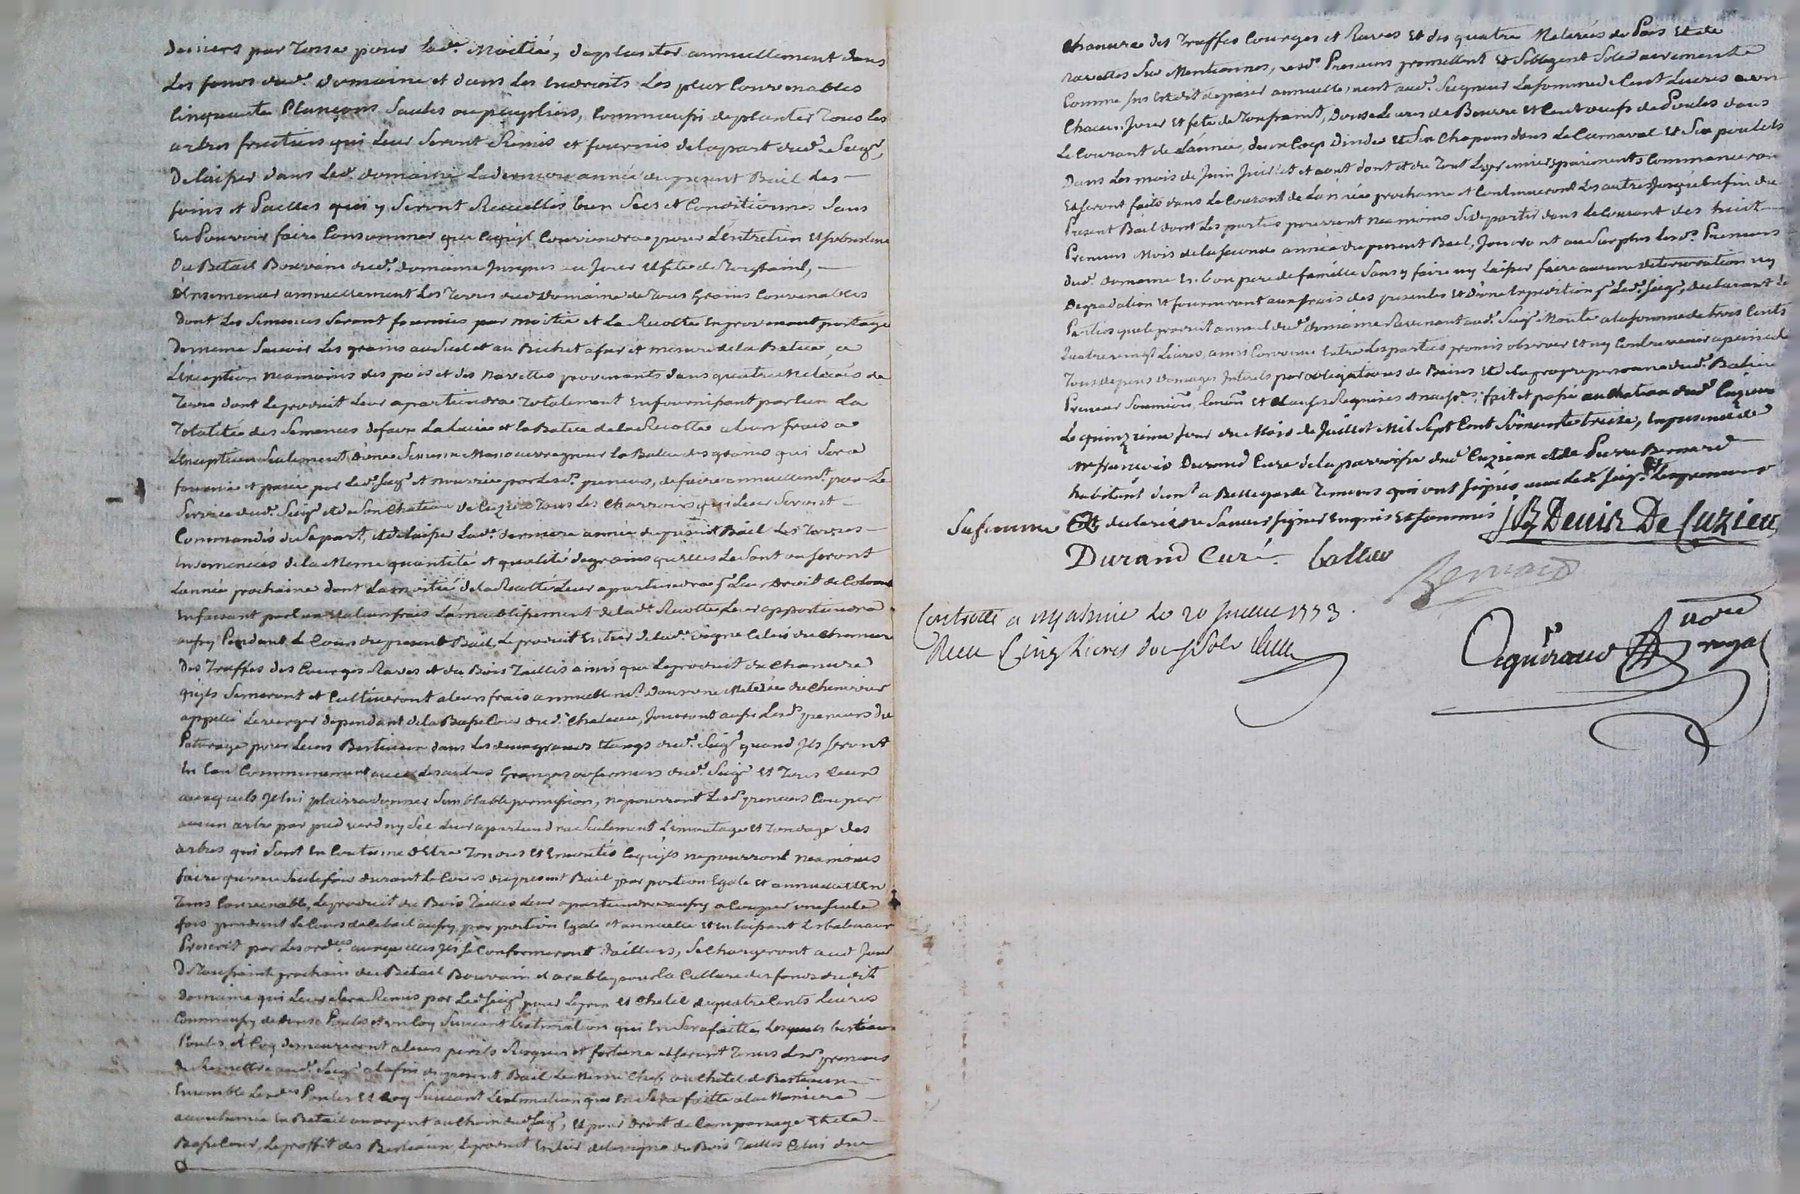 deniers par Tonne pour lad.e Moitié, de planter annuellement dans
Les fonds dud.t domaine et dans Les Endroits Les plus Convenables
Cinquante Plançons Saules ou peupliers, Comme aussi de planter Tous les
arbres fruitiers qui Leur Seront Remis et fournis de la part dud.t Seig.r
De laisser dans Led.t domaine La derniere année du present Bail des
foins et Pailles qui y Seront Recueillis bien Secs et Conditionnés Sans
En Pouvoir faire Consommer que ce qu'il Conviendra pour L'entretien et subsistance
Du Betail Bouvain dud.t domaine Jusques au Jour et fete de Toussaint,
d'Ensemencer annuellement Les Terres dud.t Domaine de Tous Grains Convenables
Dont Les Semences Seront fournies par moitié et La Recolte En provenant partagé
De meme Scavoir Les grains au Sol et au Bichet a fur et mesure de la Batue, a
L'exception neamoins des pois et des navettes provenants dans quatre Meterées de
Terre dont Le produit Leur apartiendra Totalement En fournissant par Eux La
Totalité des Semences de faire La Levée et la Batue de la Recolte a leur frais a
L'exception Seulement d'une Manoeuvre pour la Batue des grains qui Sera
fournie et payée par Led.t Seig.r et nourrie par Lesd.s preneurs, de faire annuellem.t pour Le
Service dud.t Seig.r et de Son Chateau de Cuzieu Tous Les Charrois qui Leur Seront
Commandés de Sa part, et de laisser Lad.e derniere année du present Bail Les Terres
Ensemencées de la Meme quantité et qualité de grains qu'elles Le Sont ou Seront
L'année prochaine dont La moitié de la Recolte Leur apartiendra p.r Leur Droit de Colonne
En faisant par Eux et a leur frais
aussy Pendant le Cours du present Bail Le produit Entier de la vigne Celui du Chanvre
Des Truffes des Courges Raves et du Bois Taillis ainsi que Le produit du Chanvre
qu'ils Semeront et Cultiveront a leurs frais annuellem.t dans une Meterée de Cheneviere
appellé Le verger dependant de la Basse Cour dud.t Chateau, Jouiront aussi Lesd.s preneurs du
Paturage pour Leurs Bestiaux dans Les deux grands Etangs dud.t Seig.r quand Ils Seront
En Eau Communement avec Les autres Grangers ou fermiers dud.t Seig.r et Tous Ceux
auxquels Il lui plaira donner Semblable permission, ne pourront Lesd.s preneurs Couper
aucun arbre par pied verd ny Sec Leur apartiendra Seulement L'emontage et Tondage des
arbres qui Sont En Coutume d'Etre Tondus et Emontés Ce qu'ils ne pourront neamoins
faire qu'une Seule fois durant Le Cours du present Bail par portion Egale et annuelle et En
Tems Convenable, Le produit du Bois Taillis Leur apartiendra aussy a Couper une seule
fois pendant le Cours de Ce bail aussy par portion Egale et annuelle et En laissant Les balivaux
Prescrit par Les ord.ces auxquelles Ils Se Conformeront D'ailleurs, Se Chargeront aud.t Jour
De Toussaint prochain du Betail Bouvain et arable pour La Culture des fonds dudit
Domaine qui Leur Sera Remis par Led.t Seig.r pour Le prix et Chetel de quatre Cents Livres
Comme aussy de Poules et un Coq Suivant L'estimation qui En Sera faite, Lesquels bestiaux
Poules et Coq demeureront a leurs perils Risques et fortune et Seront Tenus Lesd.s preneurs
de Remettre aud.t Seig.r a la fin du present Bail Le Meme Chef ou Chetel de Bestiaux
Ensemble Lesd.es Poules et Coq Suivant L'estimation qui En Sera faite a la Maniere
accoutumée En Betail ou argent au Choix dud.t Seig.r, Et pour Droit de Comparsage et de la
Basse Cour, Le proffit des Bestiaux, Le produit Entier de la vigne du Bois Taillis Celui du
Chanvre des Truffes Courges et Raves Et des quatre Meterées de Pois et de
navettes Sus Mentionnés, Lesd. Preneurs promettent et S'obligent Solidairement
Comme Sus Est dit de payer annuellement aud.t Seigneur La Somme de Cent Livres a un
Chacun Jour et fete de Toussaint, Douze Livres de Beurre et Cent oeufs de Poules dans
Le Courant de L'année, deux Coqs Dindes et Six Chapons dans Le Carnaval et Six poulets
Dans Les mois de Juin Juillet et aout dont et du Tout Les premiers paiements Commenceront
Et Seront faits dans Le Courant de L'année prochaine et Continueront Les autres Jusqu'en fin du
Present Bail dont Les parties pourront neamoins Se departir dans Le Courant des huit
Premiers Mois de la seconde année du present Bail, Jouiront au Surplus Lesd.s Preneurs
dud.t domaine En bon pere de famille Sans y faire ny Laisser faire aucune deterioration ny
Degradation et fourniront aux frais des presentes et D'une Expedition p.r Led.t Seig.r, declarant Les
Parties que Le produit annuel dud.t domaine Revenant aud.t Seig.r Monte a la somme de trois Cents
Quatre vingt Livres, ainsi Convenu Entre Les parties promis observer et ny Contrevenir a peine de
Tous depens domages Interets par obligations de Biens et de la propre personne dud.t
Preneur Soumiss.s Renon.s et Clauses Requises et necess.s fait et passé au Chateau dud.t Cuzieu
Le quinzieme Jour du Mois de Juillet Mil Sept Cent Soixante treize, En presence de
M.re françois Durand Curé de la parroisse dud.t Cuzieu et de Pierre Bernard
habitant dem.t a Bellegarde Temoins qui ont Signés avec Led.t Seig.r Le preneur
Sa femme Ont declaré ne Savoir Signer Enquis et Sommés
J B Denis De Cuzieu
Durand Curé.
Bernard
Controllé a le 20 Juillet 1773.
Recu Cinq Livres douze Sols
no.re royal